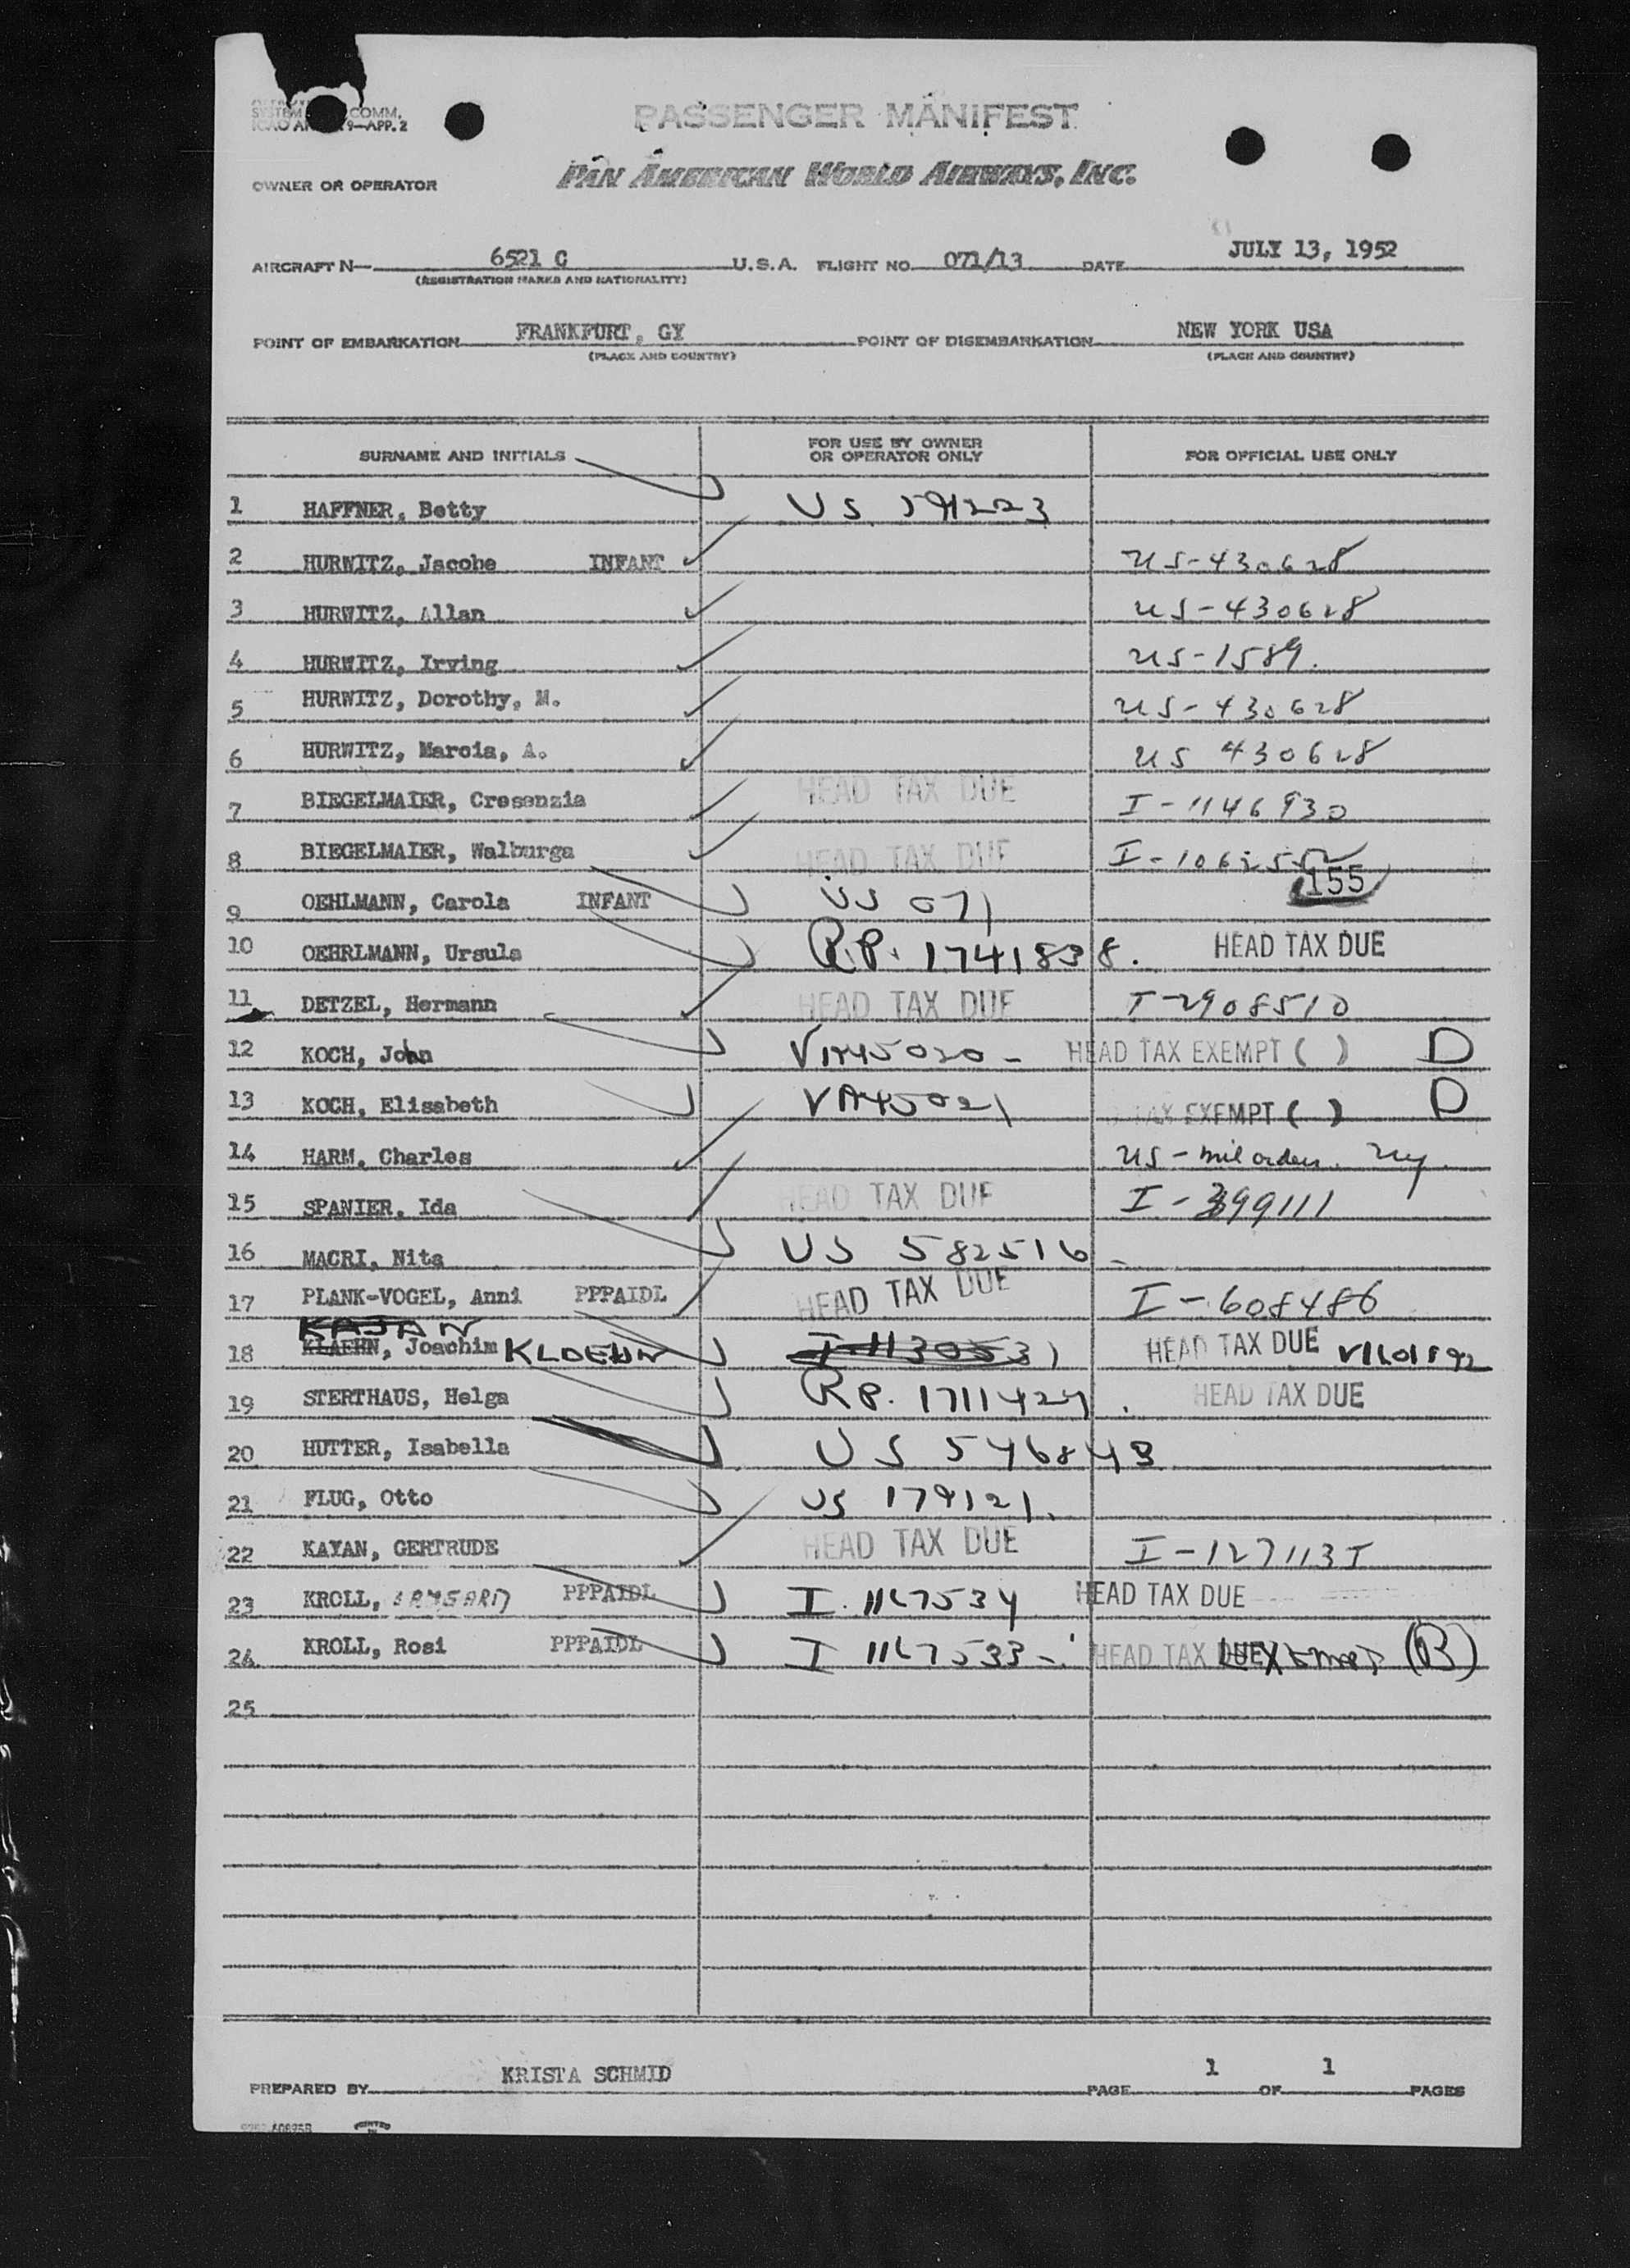 SYSTEM COMM.
ICAO 9—APP. 2
PASSENGER MANIFEST
OWNER OR OPERATOR PAN AMERICAN WORLD AIRWAYS, INC.
AIRCRAFT N— 6521 C U.S.A. FLIGHT NO. 071/13 DATE JULY 13, 1952
(REGISTRATION MARKS AND NATIONALITY)
POINT OF EMBARKATION FRANKFURT, GY POINT OF DISEMBARKATION NEW YORK USA
(PLACE AND COUNTRY) (PLACE AND COUNTRY)
SURNAME AND INITIALS FOR USE BY OWNER OR OPERATOR ONLY FOR OFFICIAL USE ONLY
1 HAFFNER, Betty US 591223
2 HURWITZ, Jacobe INFANT US-430628
3 HURWITZ, Allan US-430628
4 HURWITZ, Irving US-1589.
5 HURWITZ, Dorothy, M. US-430628
6 HURWITZ, Marcia, A. US 430628
7 BIEGELMAIER, Cresenzia HEAD TAX DUE I-1146930
8 BIEGELMAIER, Walburga HEAD TAX DUE
155
9 OEHLMANN, Carola INFANT US 071
10 OEHRLMANN, Ursula R.P. 1741838. HEAD TAX DUE
11 DETZEL, Hermann HEAD TAX DUE I-2908510
12 KOCH, John HEAD TAX EXEMPT ( ) D
13 KOCH, Elisabeth VA45021 TAX EXEMPT ( ) D
14 HARM, Charles US - mil orders.
15 SPANIER, Ida HEAD TAX DUE I-399111
16 MACRI, Nita US 582516
17 PLANK-VOGEL, Anni PPPAIDL HEAD TAX DUE I-608486
KAJAN
18 KLAEHN, Joachim KLOEHN I-113053 HEAD TAX DUE
19 STERTHAUS, Helga R.P. 1711427. HEAD TAX DUE
20 HUTTER, Isabella US 546843
21 FLUG, Otto US 179121.
22 KAYAN, GERTRUDE HEAD TAX DUE I-127113I
23 KROLL, PPPAIDL I. 1167534 HEAD TAX DUE
24 KROLL, Rosi PPPAIDL I 1167533 HEAD TAX DUE Exempt (B)
25
PREPARED BY KRISTA SCHMID PAGE 1 OF 1 PAGES